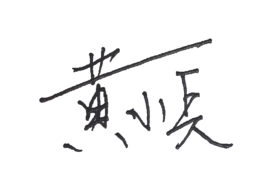 黄小兵